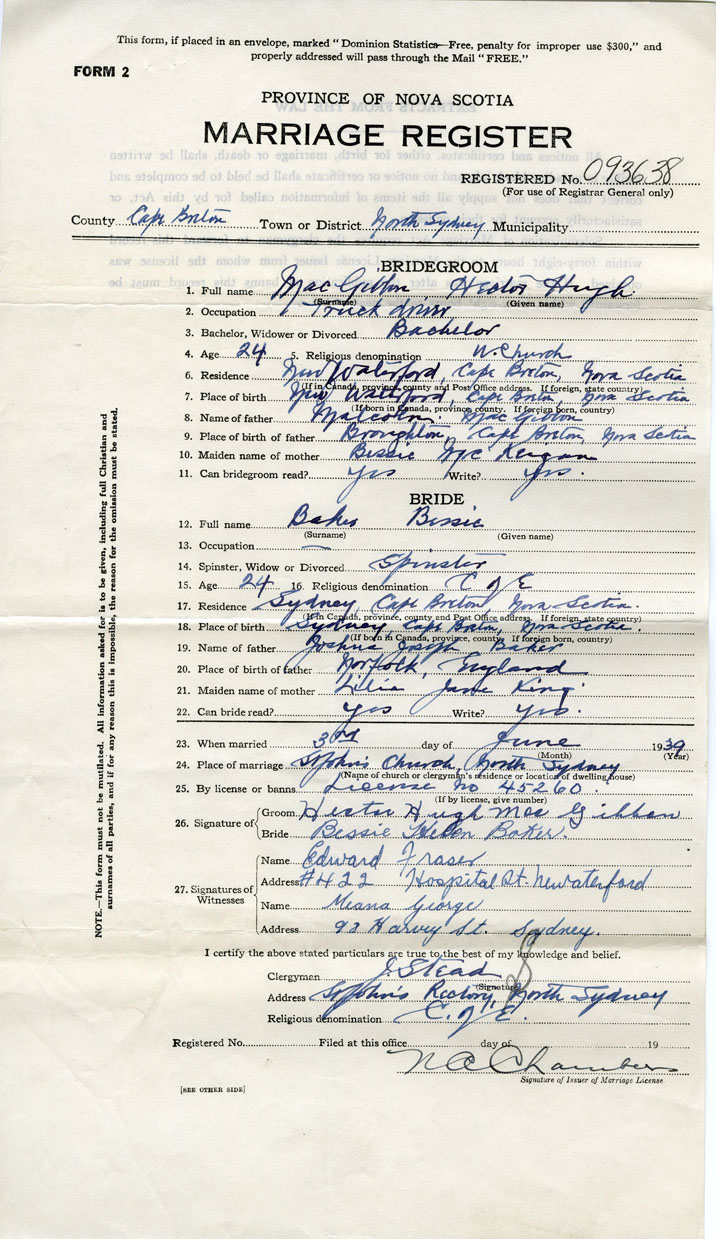 This form, if placed in an envelope, marked “ Dominion Statistics—Free, penalty for improper use $300,” and
properly addressed will pass through the Mail “ FREE.”
FORM 2
PROVINCE OF NOVA SCOTIA
MARRIAGE REGISTER
REGISTERED No. 093638
(For use of Registrar General only)
County Cape Breton Town or District North Sydney Municipality
BRIDEGROOM
1. Full name MacGibbon Hector Hugh
(Surname) (Given name)
2. Occupation Truck driver
3. Bachelor, Widower or Divorced Bachelor
4. Age 24 5. Religious denomination U. Church
6. Residence New Waterford, Cape Breton, Nova Scotia
(If in Canada, province, county and Post Office address. If foreign, state country)
7. Place of birth New Waterford, Cape Breton, Nova Scotia
(If born in Canada, province, county. If foreign born, country)
8. Name of father Malcolm MacGibbon
9. Place of birth of father Broughton, Cape Breton, Nova Scotia
10. Maiden name of mother Bessie McKeigan
11. Can bridegroom read? Yes Write? Yes.
BRIDE
12. Full name Baker Bessie
(Surname) (Given name)
13. Occupation —
14. Spinster, Widow or Divorced Spinster
15. Age 24 16. Religious denomination C of E
17. Residence Sydney, Cape Breton, Nova Scotia.
(If in Canada, province, county and Post Office address. If foreign, state country)
18. Place of birth Sydney, Cape Breton, Nova Scotia.
(If born in Canada, province, county. If foreign born, country)
19. Name of father Joshua Joseph Baker
20. Place of birth of father Norfolk, England
21. Maiden name of mother Lilia Jane King
22. Can bride read? Yes Write? Yes.
23. When married 3rd day of June 1939
(Month) (Year)
24. Place of marriage St John's Church, North Sydney
(Name of church or clergyman's residence or location of dwelling house)
25. By license or banns License No 45260.
(If by license, give number)
26. Signature of
Groom Hector Hugh MacGibbon
Bride Bessie Helen Baker.
27. Signatures of Witnesses
Name Edward Fraser
Address #422 Hospital St. New Waterford
Name George
Address 92 Harvey St. Sydney.
I certify the above stated particulars are true to the best of my knowledge and belief.
Clergyman J Stead
(Signature)
Address St John's Rectory, North Sydney
Religious denomination C. of E.
Registered No. Filed at this office day of 19
Chambers
Signature of Issuer of Marriage License.
[SEE OTHER SIDE]
NOTE.—This form must not be mutilated. All information asked for is to be given, including full Christian and
surnames of all parties, and if for any reason this is impossible, the reason for the omission must be stated.